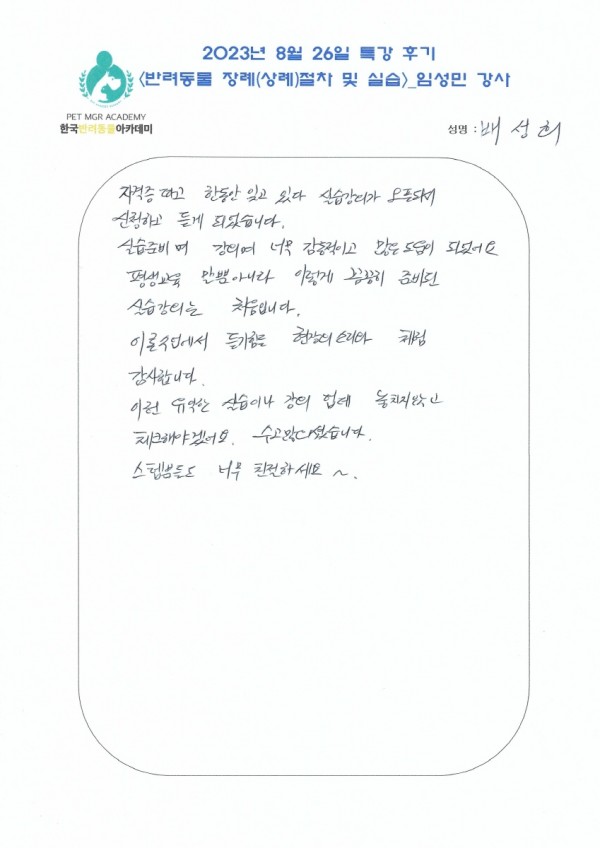 2023년 8월 26일 특강 후기
<반려동물 장례(상례)절차 및 실습>_임성민 강사
PET MGR ACADEMY
한국반려동물아카데미
성명 : 배성희
자격증 따고 한동안 잊고 있다 실습강의가 오픈되어
신청하고 듣게 되었습니다.
실습준비며 강의며 너무 감동적이고 많은 도움이 되었어요
평생교육 말뿐아니라 이렇게 꼼꼼히 준비된
실습강의는 처음입니다.
이론수업에서 듣기힘든 현장의 소리와 체험
감사합니다.
이런 유익한 실습이나 강의 업데 놓치지않고
체크해야겠어요. 수고많으셨습니다.
스텝분들도 너무 친절하세요~.